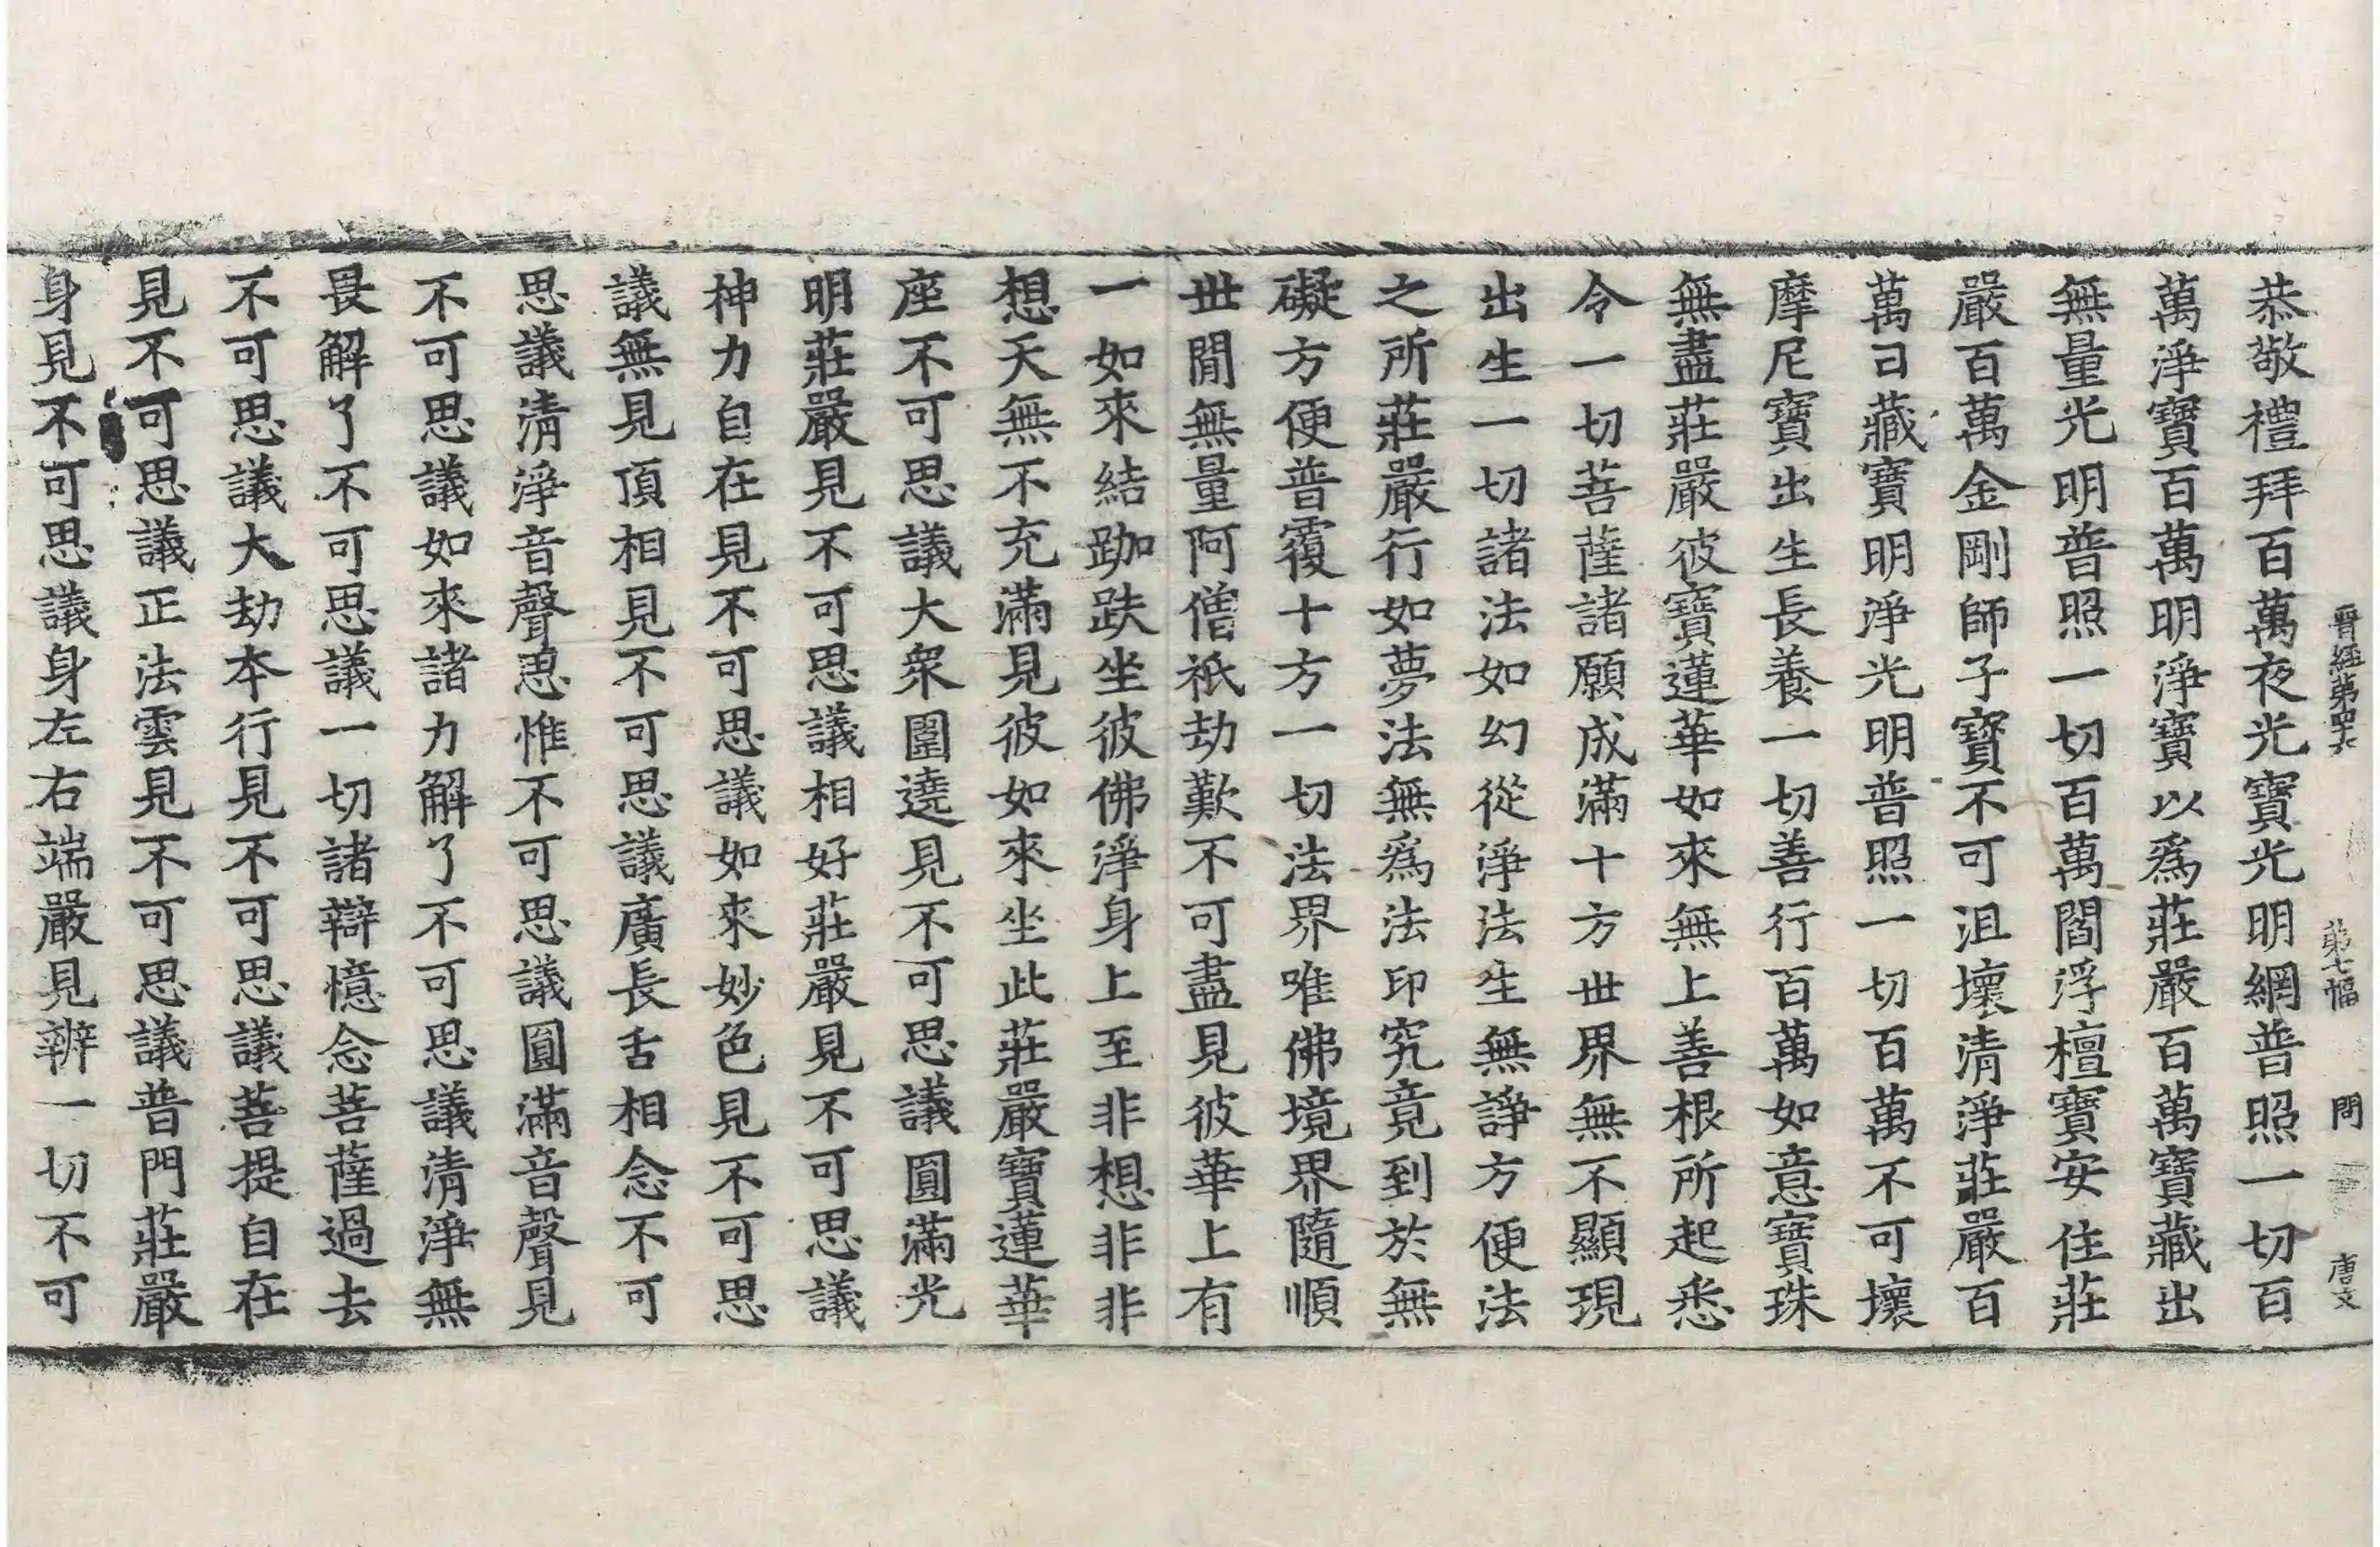 晋經第四十六 第七幅 問 唐文
恭敬禮拜百萬夜光寶光明網普照一切百
萬淨寶百萬明淨寶以爲莊嚴百萬寶藏出
無量光明普照一切百萬閻浮檀寶安住莊
嚴百萬金剛師子寶不可沮壞清淨莊嚴百
萬日藏寶明淨光明普照一切百萬不可壞
摩尼寶出生長養一切善行百萬如意寶珠
無盡莊嚴彼寶蓮華如來無上善根所起悉
令一切菩薩諸願成滿十方世界無不顯現
出生一切諸法如幻從淨法生無諍方便法
之所莊嚴行如夢法無爲法印究竟到於無
礙方便普覆十方一切法界唯佛境界隨順
世間無量阿僧祇劫歎不可盡見彼華上有
一如來結跏趺坐彼佛淨身上至非想非非
想天無不充滿見彼如來坐此莊嚴寶蓮華
座不可思議大衆圍遶見不可思議圓滿光
明莊嚴見不可思議相好莊嚴見不可思議
神力自在見不可思議如來妙色見不可思
議無見頂相見不可思議廣長舌相念不可
思議清淨音聲思惟不可思議圓滿音聲見
不可思議如來諸力解了不可思議清淨無
畏解了不可思議一切諸辯憶念菩薩過去
不可思議大劫本行見不可思議菩提自在
見不可思議正法雲見不可思議普門莊嚴
身見不可思議身左右端嚴見辨一切不可